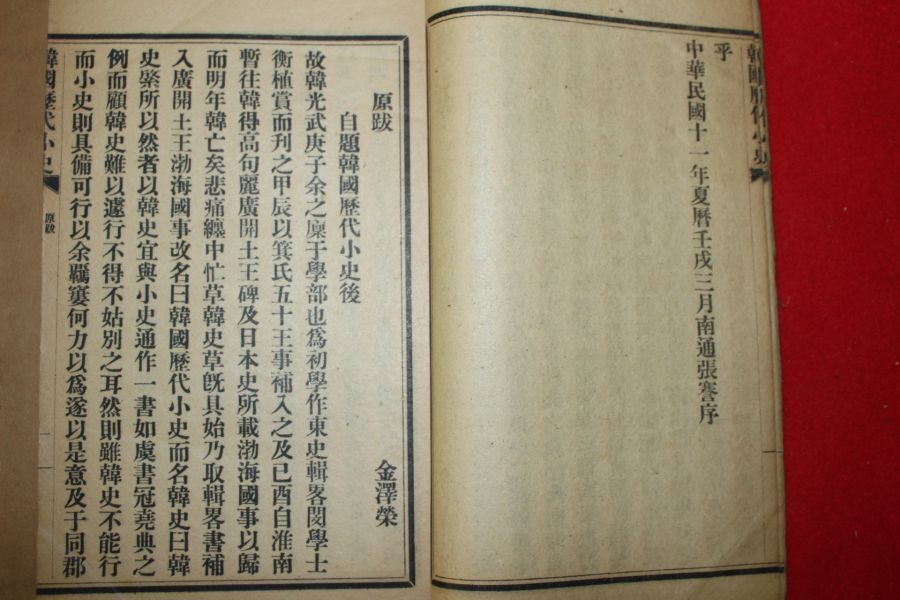 韓國歷代小史
乎
中華民國十一年夏曆壬戌三月南通張謇序
原跋
自題韓國歷代小史後　金澤榮
故韓光武庚子余之廩于學部也爲初學作東史輯畧閔學士
衡植賞而刋之甲辰以箕氏五十王事補入之及己酉自淮南
暫往韓得高句麗廣開土王碑及日本史所載渤海國事以歸
而明年韓亡矣悲痛纏中忙草韓史草旣具始乃取輯畧書補
入廣開土王渤海國事改名曰韓國歷代小史而名韓史曰韓
史綮所以然者以韓史宜與小史通作一書如虞書冠堯典之
例而顧韓史難以遽行不得不姑別之耳然則雖韓史不能行
而小史則具備可行以余羈窶何力以爲遂以是意及于同郡
韓國歷代小史　原跋